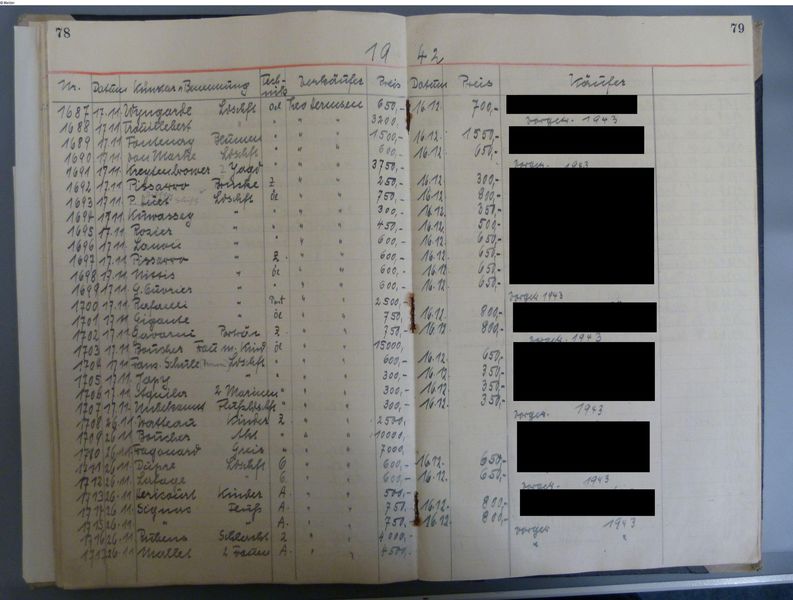 78
79
19 42
Nr. Datum Künstler u. Benennung Tech-nik Verkäufer Preis Datum Preis Käufer
1687 17.11. Wyngarde Ldschft Oel Theo Hermsen 650,- 16.12. 700,-
1688 17.11. Trouillebert " " " " 3200,- vorgetr. 1943
1689 17.11. Fontenay Blumen " " " 1500,- 16.12. 1550,-
1690 17.11. Ldschft " " " 600,- 16.12. 650,-
1691 17.11. " " " 3750,- vorgetr. 1943
1692 17.11. Pissarro Z " " 250,- 16.12. 300,-
1693 17.11. P. Huet Ldschft Oe " " 750,- 16.12. 800,-
1694 17.11. Kuwasseg " " " " 300,- 16.12. 350,-
1695 17.11. Rozier " " " " 450,- 16.12. 500,-
1696 17.11. " " " " 600,- 16.12. 650,-
1697 17.11. Pissarro " Z. " " 600,- 16.12. 650,-
1698 17.11. Nittis " Oe " " 600,- 16.12. 650,-
1699 17.11. " " " " 600,- 16.12. 650,-
1700 17.11. " " " 2500,- vorgetr. 1943
1701 17.11. Gigante " Oe " " 750,- 16.12. 800,-
1702 17.11. Gavarni Porträt Z. " " 750,- 16.12. 800,-
1703 17.11. Boucher Frau m. Kind Oe " " 15000,- vorgetr. 1943
1704 17.11. Franz. Schule Ldschft " " " 600,- 16.12. 650,-
1705 17.11. Japy " " " " 300,- 16.12. 350,-
1706 17.11. 2 Marinen " " " 300,- 16.12. 350,-
1707 17.11. " " " 300,- 16.12. 350,-
1708 26.11. Kinder Z " " 2500,- vorgetr. 1943
1709 26.11. Boucher Akt " " " 10000,-
1710 26.11. Fragonard Greis " " " 7000,-
1711 26.11. Dupré Ldschft G " " 600,- 16.12. 650,-
1712 26.11. " G. " " 600,- 16.12. 650,-
1713 26.11. Kinder A. " " 500,- vorgetr. 1943
1714 26.11. Signac A. " " 750,- 16.12. 800,-
1715 26.11. " " A. " " 750,- 16.12. 800,-
1716 26.11. Rubens Schlacht Z " " 4000,- vorgetr. 1943
1717 26.11. Mallet 2 Frauen A. " " 4500,- " "